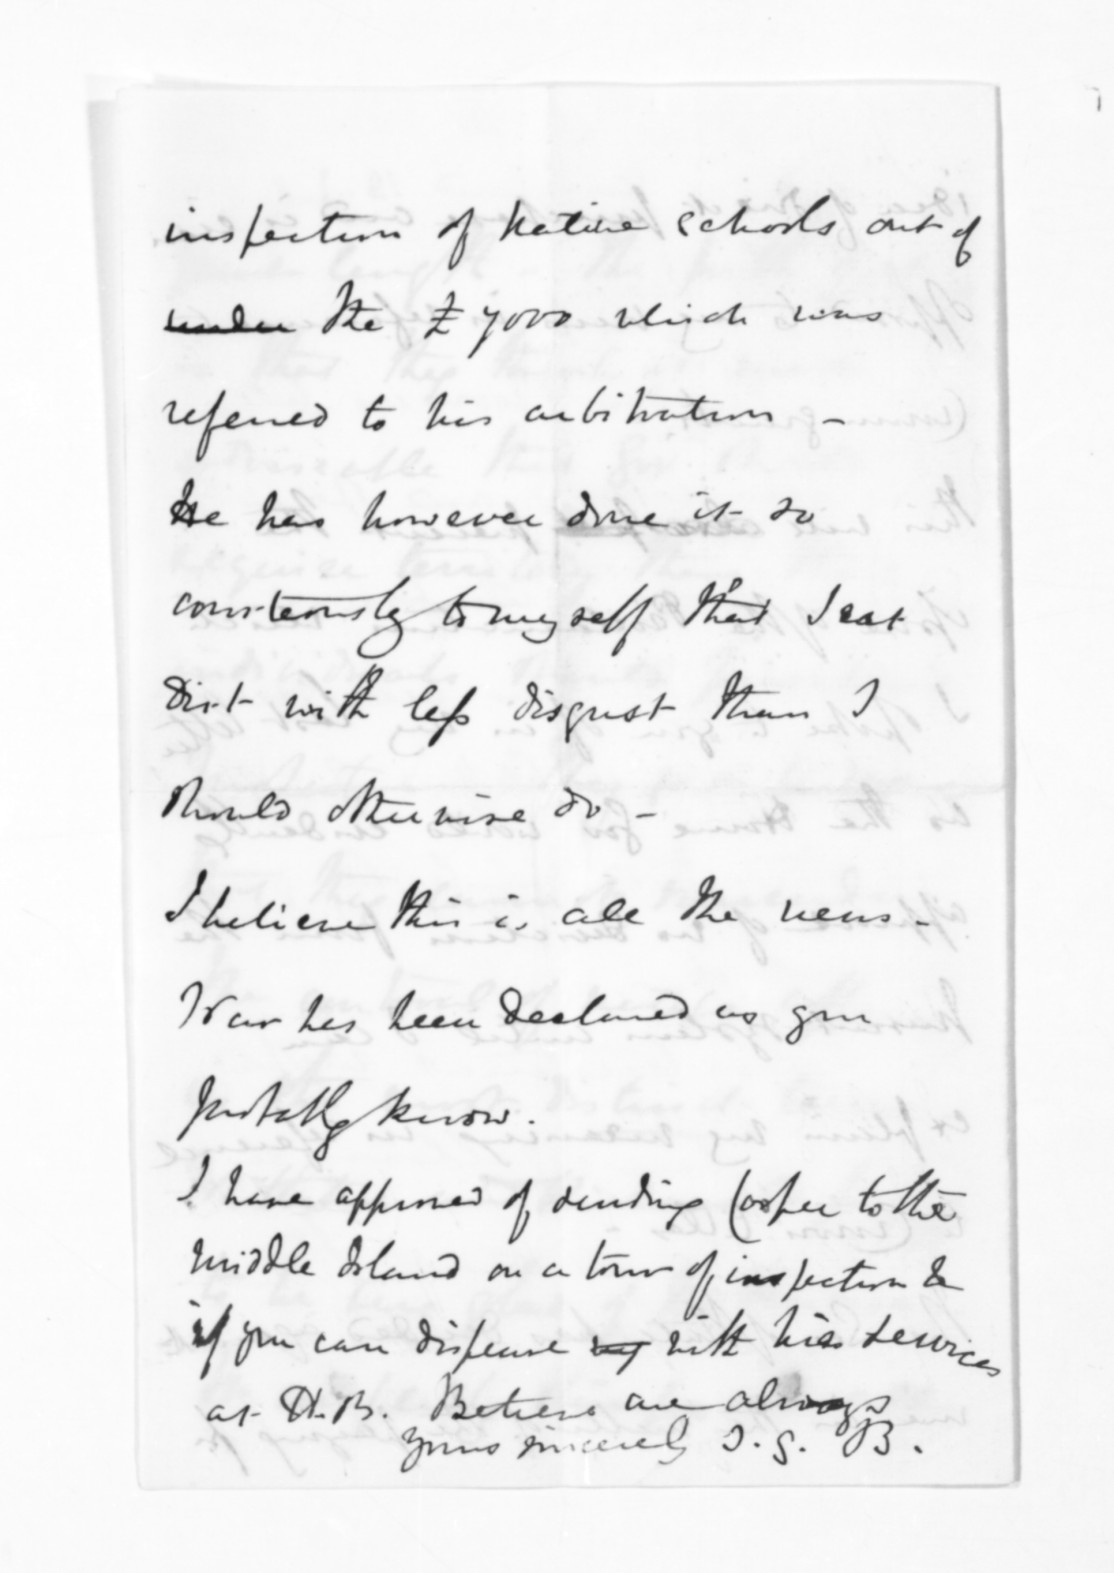 inspection of Native Schools out of
under the £7000 which was
referred to his arbitration -
He has however done it so
courteously to myself that I eat
dirt with less disgust than I
should otherwise do -
I believe this is all the news -
War has been declared as you
probably know.
I have approved of sending Cooper to the
Middle Island on a tour of inspection &
if you can dispense with his services
at H.B. Believe me always
yours sincerely